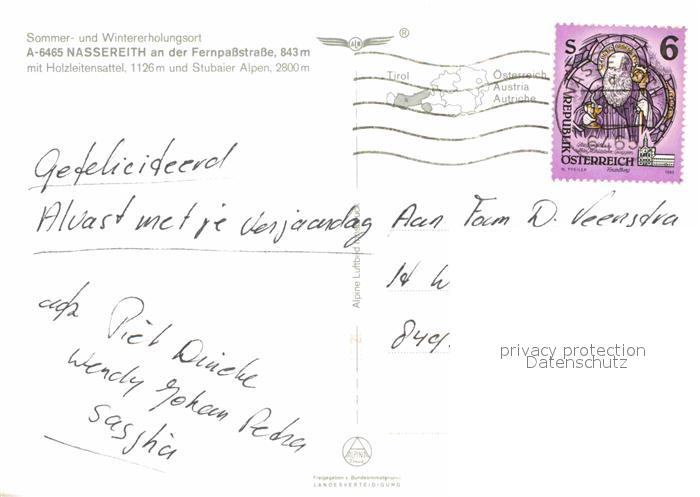 Sommer- und Wintererholungsort
A-6465 NASSEREITH an der Fernpaßstraße, 843 m
mit Holzleitensattel, 1126 m und Stubaier Alpen, 2800 m
®
Tirol
Österreich
Austria
Autriche
S 6
REPUBLIK
ÖSTERREICH
Gefeliciteerd
Alvast met je verjaardag
a/dz Piet Dineke
Wendy Johan Petra
Sasshia
Alpine Luftbild
Aan Fam D. Veenstra
H W
849.
privacy protection
Datenschutz
ALPINE
Freigegeben v. Bundesministerium f.
LANDESVERTEIDIGUNG